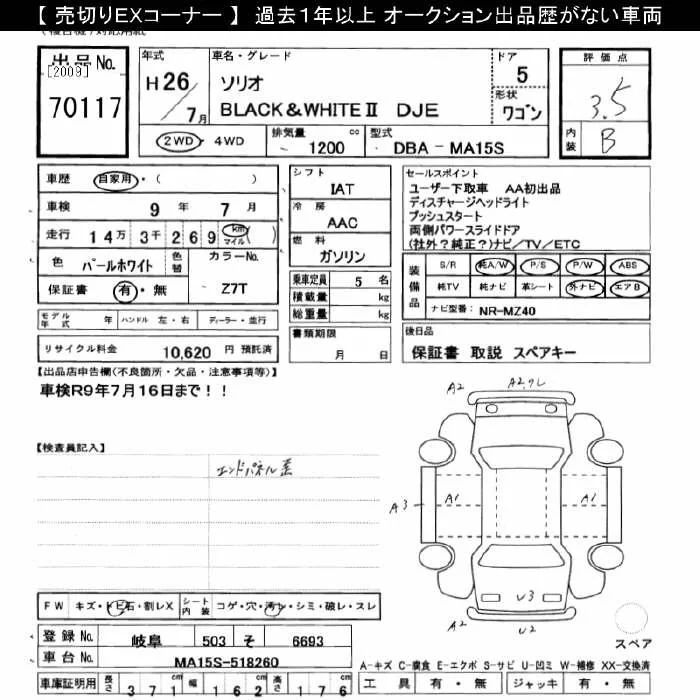 【 売切りEXコーナー 】 過去1年以上 オークション出品歴がない車両
出品No.
[2009]
70117
年式
H 26
7 月
車名・グレード
ソリオ
BLACK&WHITEⅡ DJE
ドア
5
形状
ワゴン
2WD・4WD
排気量
1200 cc
型式
DBA - MA15S
評価点
3.5
内装
B
車歴 自家用・( )
車検 9 年 7 月
走行 14万 3千 2 6 9 km マイル ( )
色 パールホワイト 色替 カラーNo.
保証書 有・無 Z7T
シフト
IAT
冷房
AAC
燃料
ガソリン
乗車定員 5 名
積載量 kg
総重量 kg
セールスポイント
ユーザー下取車 AA初出品
ディスチャージヘッドライト
プッシュスタート
両側パワースライドドア
(社外?純正?)ナビ/TV/ETC
装備品
S/R 純A/W P/S P/W ABS
純TV 純ナビ 革シート 外ナビ エアB
ナビ型番: NR-MZ40
モデル年式 年 ハンドル 左・右 ディーラー・並行
リサイクル料金 10,620 円 預託済
書類期限
月 日
後日品
保証書 取説 スペアキー
【出品店申告欄(不良箇所・欠品・注意事項等)】
車検R9年7月16日まで!!
【検査員記入】
エンドパネル歪
A2
A2,9L
A3
A1
A1
U3
A2
U2
スペア
FW キズ・トビ石・割レX シート内装 コゲ・穴・汚レ・シミ・破レ・スレ
登録No. 岐阜 503 そ 6693
車台No. MA15S-518260
車庫証明用 長さ 371 cm 幅 162 cm 高さ 176 cm
A-キズ C-腐食 E-エクボ S-サビ U-凹ミ W-補修 XX-交換済
工具 有・無 ジャッキ 有・無